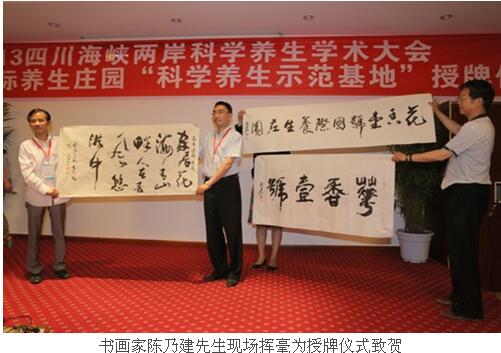 13四川海峡两岸科学养生学术大会
际养生庄园“科学养生示范基地”授牌
家居花
海青山
畔人在
花香壹號國際養生庄園
香壹號
书画家陈乃建先生现场挥毫为授牌仪式致贺